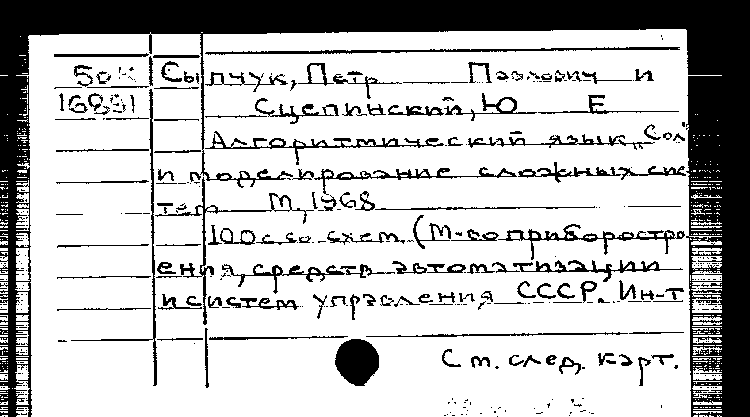 50К Сыпчук, Петр Павлович и
16831 Сцепинский, Ю Е
Алгоритмический язык „Сол"
и моделирование сложных сис
тем М, 1968
100с. со схем. (М-во приборостро
ения, средств автоматизации
и систем управления СССР. Ин-т
См. след. карт.